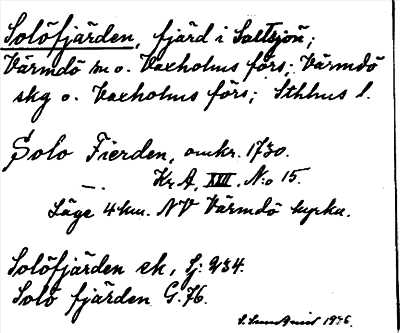 Solöfjärden, fjärd i Saltsjön;
Värmdö m o. Vaxholms förs; Värmdö
skg o. Vaxholms förs; Sthlms l.
Solo Fierden, omkr. 1730.
—.— Kr A, XVI, N:o 15.
Läge 4 km. NV Värmdö kyrka.
Solöfjärden ek, Sj: 234.
Solö fjärden G. 76.
1936.